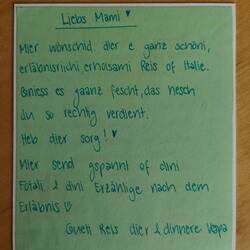 Liebs Mami ♥
Mier wönschid dier e ganz schöni,
erläbnisriichi, erholsami Reis of Italie.
Gniess es gaanz fescht, das hesch
du so rechtig verdient.
Heb dier sorg! ♥
Mier send gspannt of dini
Fötali & dini Erzählige nach dem
Erläbnis ☺
Gueti Reis dier & dinnere Vespa